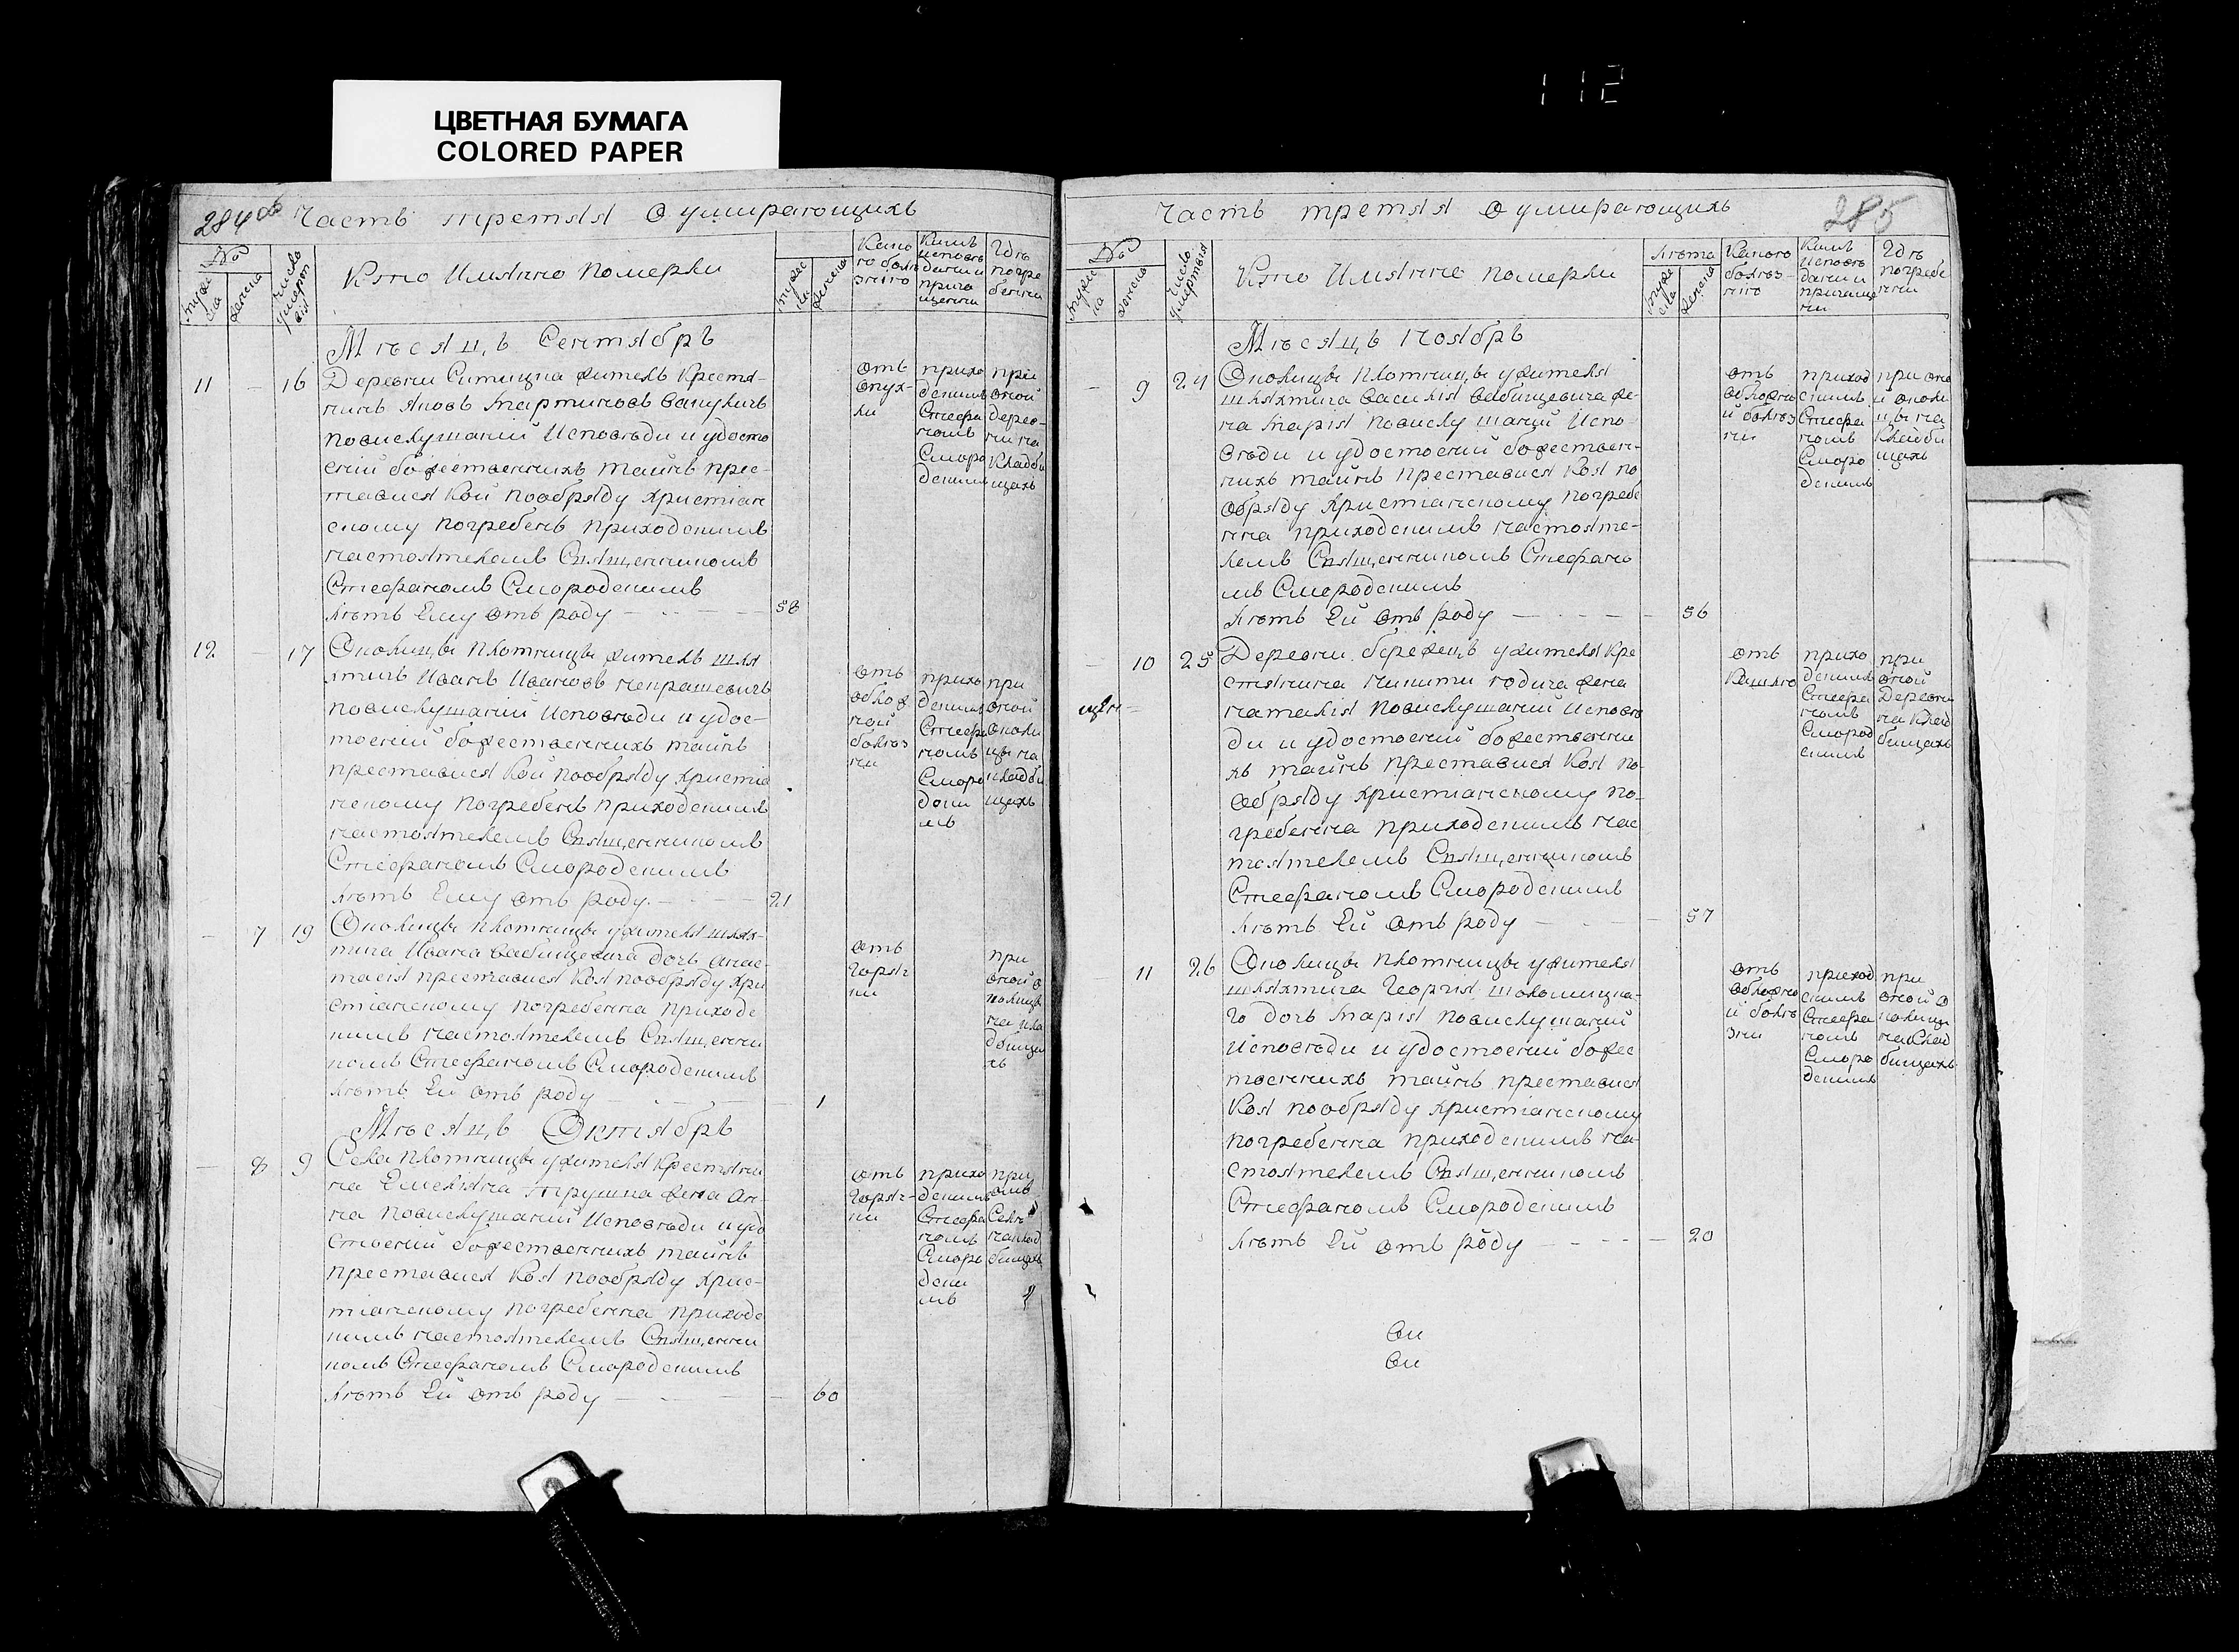 ЦВЕТНАЯ БУМАГА
COLORED PAPER
112
284 об
Часть третяя О умирающихъ
№
мужеска
женска
число умертвія
Кто Имянно Померли
мужеска
женска
Какого болезнию
Кимъ исповеданни и причащенни
Где погребенни
Мѣсяцъ Сентябръ
11 - 16 Деревни Ситицка житель Крестя-
нинъ Яковъ Мартиновъ
повислушаний Исповѣди и удосто
ений божественнихъ таинъ прес-
тавися кой пообряду христіан
скому погребенъ приходскимъ
настоятелемъ Священникомъ
Стефаномъ Смородскимъ
лѣтъ Ему отъ роду 58
отъ опух-
ли
приход
скимъ
Стефа
номъ
Сморо
дскимъ
при
оной
дерев-
ни на
кладби
щахъ
12 - 17 Околицы Плотницы житель шля
хтичъ Иванъ Ивановъ
повислушаний Исповѣди и удос-
тоений божественнихъ таинъ
преставися кой пообряду христіа
нскому погребенъ приходскимъ
настоятелемъ Священникомъ
Стефаномъ Смородскимъ
лѣтъ Ему отъ роду 21
отъ
облож
ной
болѣз
ни
прихо
дскимъ
Стефа
номъ
Сморо
дски
мъ
при
оной
околи
цы на
кладби
щахъ
- 7 19 Околицы Плотницы ужителя шлях-
тича Ивана Бабицевича дочъ Анас-
тасія преставися коя пообряду хри
стіанскому погребенна приходс
кимъ настоятелемъ Священни
комъ Стефаномъ Смородскимъ
лѣтъ Ей отъ роду 1
отъ
горяч
ки
при
оной о
колицы
на кла
дбища
хъ
Мѣсяцъ Октябръ
- 8 9 Села Плотницы ужителя Крестяни
на Емеліяна Трушка жена Ан-
на повислушаний Исповѣди и удо
стоений божественнихъ таинъ
преставися коя пообряду хрис-
тіанскому погребенна приходс
кимъ настоятелемъ Священни
комъ Стефаномъ Смородскимъ
лѣтъ Ей отъ роду 60
отъ
горяч-
ки
прихо
дскимъ
Стефа
номъ
Сморо
дски
мъ
при
омъ
Селѣ
на клад
бищахъ
285
Часть третяя О умирающихъ
№
мужеска
женска
число умертвія
Кто Имянно Померли
лѣта
мужеска
женска
Какого
болѣз-
нию
Кимъ
исповѣ
данни и
причаще
ни
Гдѣ
погребе
нни
Мѣсяцъ Ноябръ
- 9 24 Околицы Плотницы ужителя
шляхтича Василія Бабицевича же-
на Марія повислушаний Испо-
вѣди и удостоений божествен-
нихъ таинъ преставися коя по
обряду христіанскому погребе
нна приходскимъ настояте-
лемъ Священникомъ Стефано
мъ Смородскимъ
лѣтъ Ей отъ роду 56
отъ
обложно
й болѣз
ни
приход
скимъ
Стефа
номъ
Сморо
дскимъ
при оно
й околи
цы на
кладби
щахъ
- 10 25 Деревни Бережецъ ужителя Кре
стянина Никити Кодича жена
Наталія повислушаний Исповѣ
ди и удостоений божественни
хъ таинъ преставися коя по-
обряду христіанскому по-
гребенна приходскимъ нас
тоятелемъ Священникомъ
Стефаномъ Смородскимъ
лѣтъ Ей отъ роду 57
отъ
кашлю
прихо
дскимъ
Стефа
номъ
Смород
скимъ
при
оной
Деревни
на клад
бищахъ
- 11 26 Околицы Плотницы ужителя
шляхтича Георгія Шоломицка-
го дочъ Марія повислушаний
Исповѣди и удостоений божес
твеннихъ таинъ преставися
коя пообряду христіанскому
погребенна приходскимъ на-
стоятелемъ Священникомъ
Стефаномъ Смородскимъ
лѣтъ Ей отъ роду 20
отъ
обложно
й болѣ
зни
приход
скимъ
Стефа
номъ
Сморо
дскимъ
при
оной о
колици
на клад
бищахъ